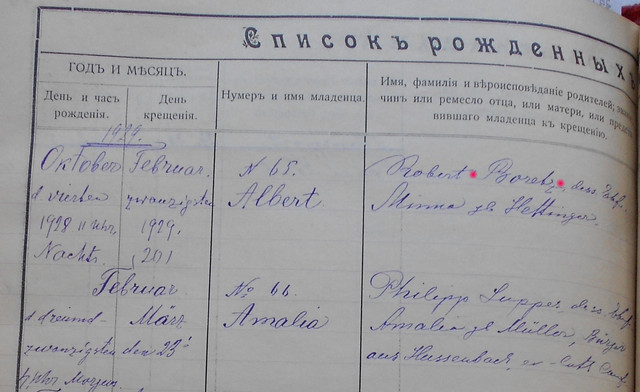 Списокъ рожденныхъ
ГОДЪ И МѢСЯЦЪ.
День и часъ рожденія.
День крещенія.
Нумеръ и имя младенца.
Имя, фамилія и вѣроисповѣданіе родителей;
чинъ или ремесло отца, или матери, или
нившаго младенца къ крещенію.
1929.
October Februar. N 65. Robert Boretz, dess. Ehef.
d vierten zwanzigsten Albert. Minna gb Hettinger.
1928 11 Uhr 1929.
Nachts. (20)
Februar No 66. Philipp Supper dess. Ehef
d dreiund- März Amalia Amalia gb Müller, Bürger
zwanzigsten den 23' aus Hussenbach, ev. luth.
Uhr Morgen